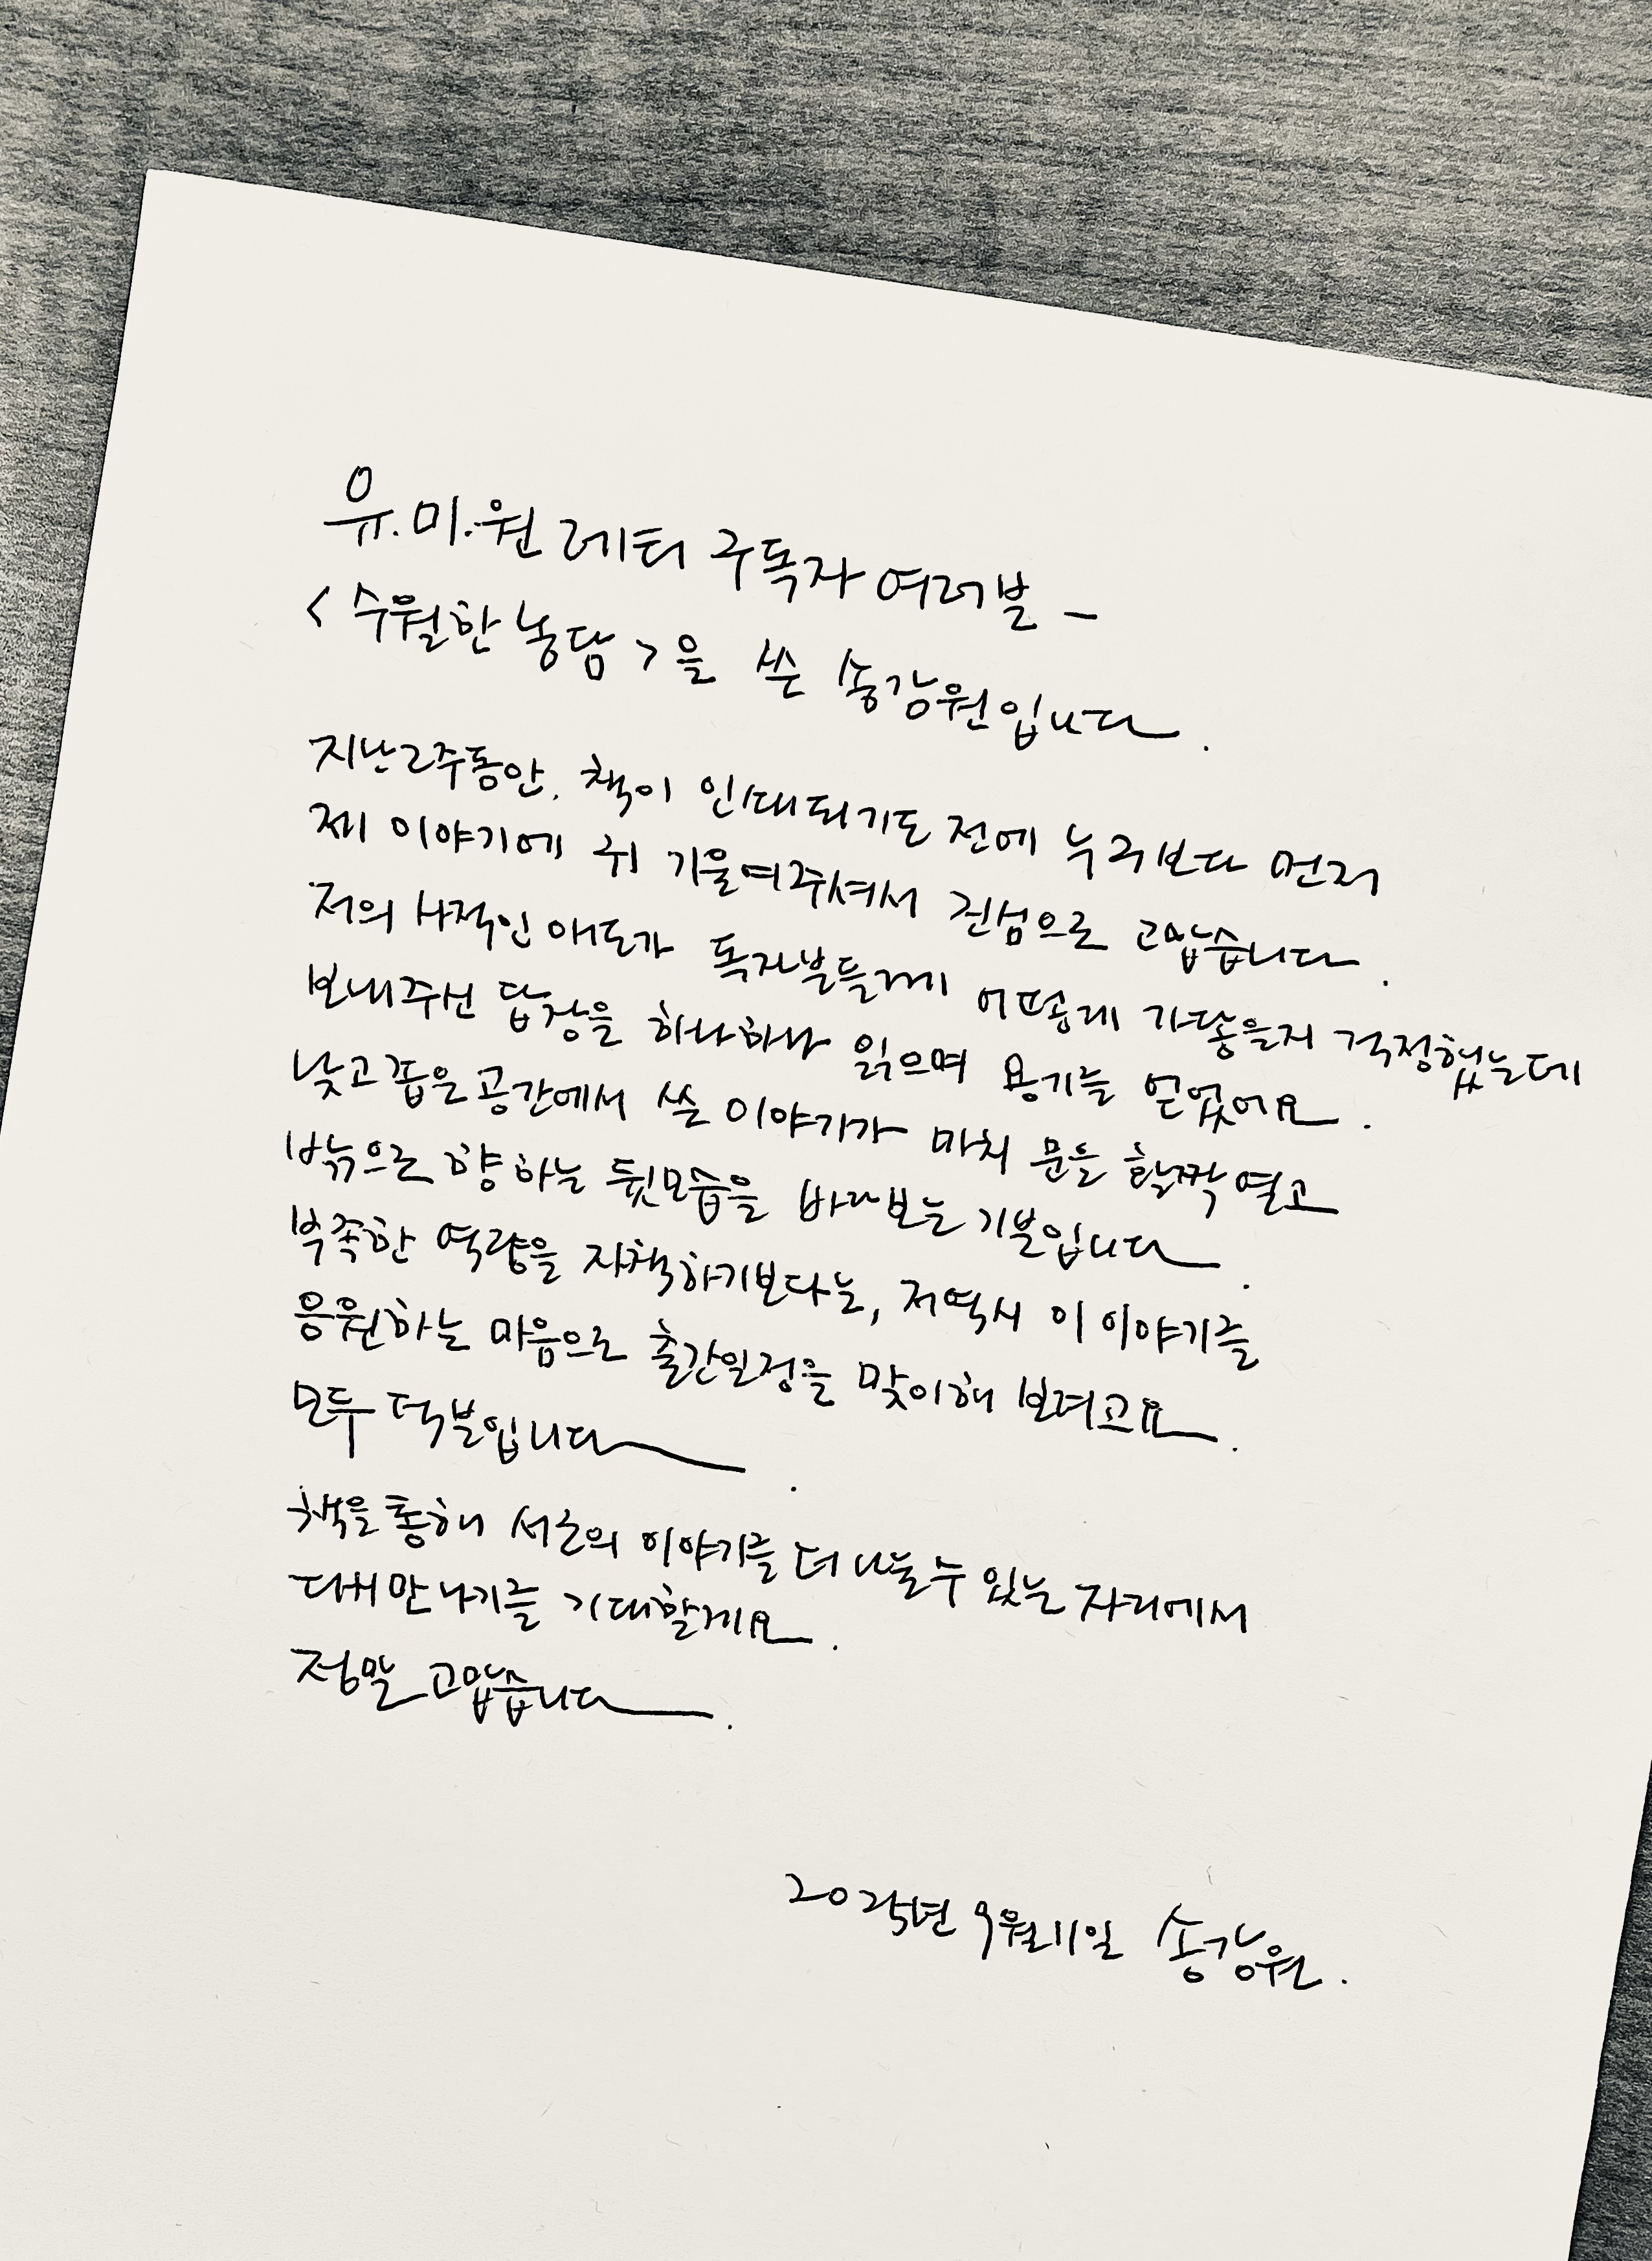 유.미.원 레터 구독자 여러분 -
<수월한 농담>을 쓴 송강원입니다.
지난 2주동안, 책이 인쇄되기도 전에 누구보다 먼저
제 이야기에 귀 기울여주셔서 진심으로 고맙습니다.
저의 사적인 애도가 독자분들께 어떻게 가닿을지 걱정했는데
보내주신 답장을 하나하나 읽으며 용기를 얻었어요.
낮고 좁은 공간에서 쓴 이야기가 마치 문을 활짝 열고
밖으로 향하는 뒷모습을 바라보는 기분입니다.
부족한 역량을 자책하기보다는, 저 역시 이 이야기를
응원하는 마음으로 출간일정을 맞이해 보려고요.
모두 덕분입니다.
책을 통해 서로의 이야기를 더 나눌 수 있는 자리에서
다시 만나기를 기대할게요.
정말 고맙습니다.
2025년 9월 11일 송강원.